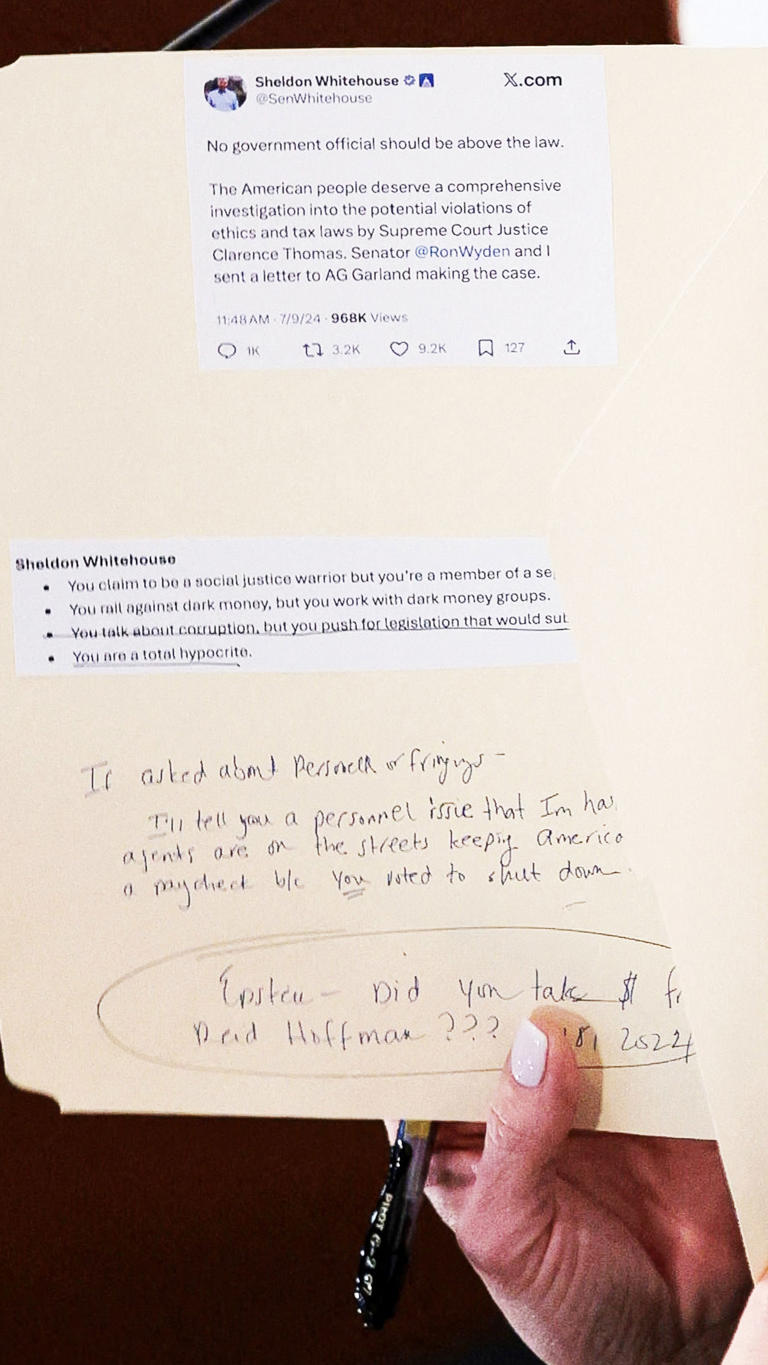 Sheldon Whitehouse X.com
@SenWhitehouse
No government official should be above the law.
The American people deserve a comprehensive
investigation into the potential violations of
ethics and tax laws by Supreme Court Justice
Clarence Thomas. Senator @RonWyden and I
sent a letter to AG Garland making the case.
11:48 AM · 7/9/24 · 968K Views
1K 3.2K 9.2K 127
Sheldon Whitehouse
• You claim to be a social justice warrior but you're a member of a se
• You rail against dark money, but you work with dark money groups.
• You talk about corruption, but you push for legislation that would sub
• You are a total hypocrite.
If asked about or firings –
I'll tell you a personnel issue that Im ha
agents are on the streets keepig America
a paycheck b/c You voted to shut down.
Epstein – Did you take $ fr
Reid Hoffman ??? '18, 2024
PILOT G-2 07